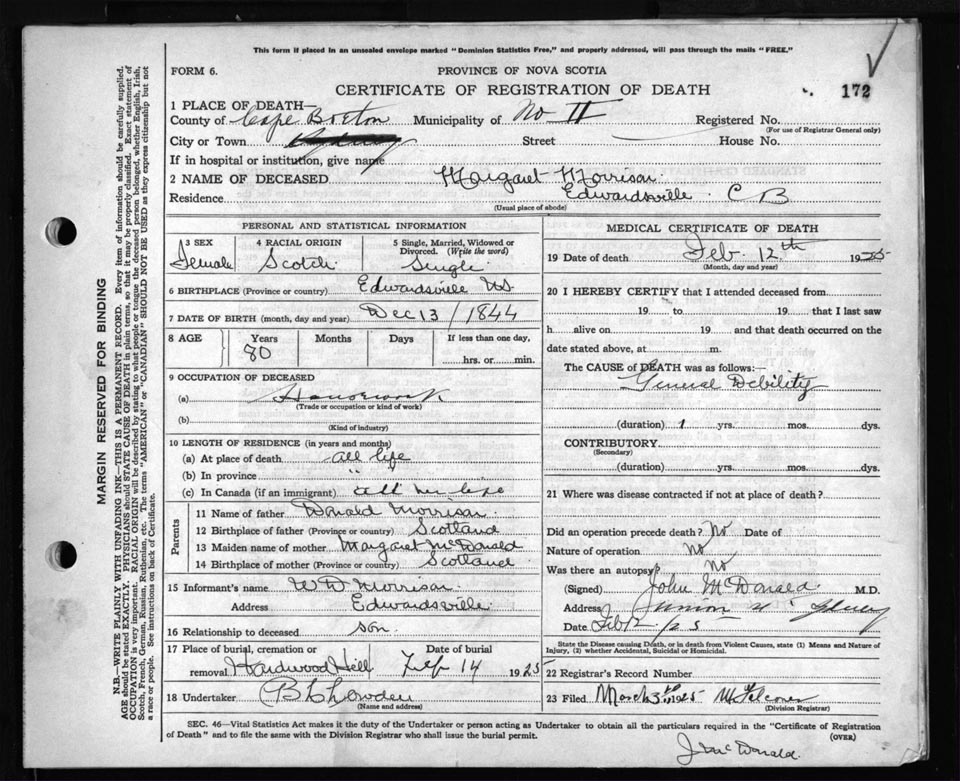 This form if placed in an unsealed envelope marked "Dominion Statistics Free," and properly addressed, will pass through the mails "FREE."
FORM 6. PROVINCE OF NOVA SCOTIA
CERTIFICATE OF REGISTRATION OF DEATH 172
1 PLACE OF DEATH—
County of Cape Breton Municipality of No II Registered No.
(For use of Registrar General only)
City or Town Sydney Street House No.
If in hospital or institution, give name
2 NAME OF DECEASED Margaret Morrison
Residence Edwardsville C B
(Usual place of abode)
PERSONAL AND STATISTICAL INFORMATION
3 SEX 4 RACIAL ORIGIN 5 Single, Married, Widowed or Divorced. (Write the word)
Female Scotch Single
6 BIRTHPLACE (Province or country) Edwardsville NS
7 DATE OF BIRTH (month, day and year) Dec 13 / 1844
8 AGE Years Months Days If less than one day,
80 hrs. or min.
9 OCCUPATION OF DECEASED
(a) Housework
(Trade or occupation or kind of work)
(b)
(Kind of industry)
10 LENGTH OF RESIDENCE (in years and months)
(a) At place of death all life
(b) In province "
(c) In Canada (if an immigrant) all her life
Parents
11 Name of father Donald Morrison
12 Birthplace of father (Province or country) Scotland
13 Maiden name of mother Margaret McDonald
14 Birthplace of mother (Province or country) Scotland
15 Informant's name W D Morrison
Address Edwardsville
16 Relationship to deceased son
17 Place of burial, cremation or removal Date of burial
Hardwood Hill Feb 14 1925
18 Undertaker
(Name and address)
MEDICAL CERTIFICATE OF DEATH
19 Date of death Feb. 12th 1925
(Month, day and year)
20 I HEREBY CERTIFY that I attended deceased from
19 to 19 that I last saw
h alive on 19 and that death occurred on the
date stated above, at m.
The CAUSE OF DEATH was as follows:—
General Debility
(duration) 1 yrs. mos. dys.
CONTRIBUTORY
(Secondary)
(duration) yrs. mos. dys.
21 Where was disease contracted if not at place of death?
Did an operation precede death? No Date of
Nature of operation No
Was there an autopsy No
(Signed) John McDonald M.D.
Address Sydney
Date Feb 12/25
State the Disease causing Death, or in death from Violent Causes, state (1) Means and Nature of Injury, (2) whether Accidental, Suicidal or Homicidal.
22 Registrar's Record Number
23 Filed March 3rd 1925
(Division Registrar)
SEC. 46—Vital Statistics Act makes it the duty of the Undertaker or person acting as Undertaker to obtain all the particulars required in the "Certificate of Registration
of Death" and to file the same with the Division Registrar who shall issue the burial permit. (OVER)
J McDonald
MARGIN RESERVED FOR BINDING
N.B.—WRITE PLAINLY WITH UNFADING INK—THIS IS A PERMANENT RECORD. Every item of information should be carefully supplied.
AGE should be stated EXACTLY. PHYSICIANS should STATE CAUSE OF DEATH in plain terms, so that it may be properly classified. Exact statement of
OCCUPATION is very important. RACIAL ORIGIN will be described by stating to what people or tongue the deceased person belonged, whether English, Irish,
Scotch, French, German, Russian, Ruthenian, etc. The terms "AMERICAN" or "CANADIAN" SHOULD NOT BE USED as they express citizenship but not
a race or people. See instructions on back of Certificate.